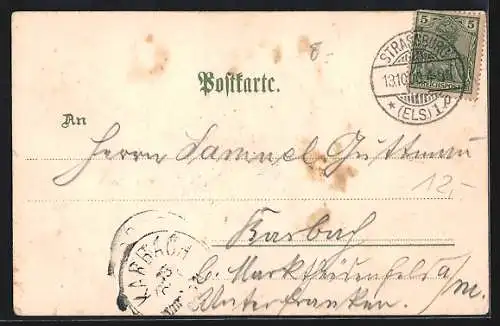 8.-
5
STRASSBURG
13.10.
* (ELS) 1.p
Postkarte.
An
Herrn Samuel Guttmann
12,-
Karbach
KARBACH
b. Marktheidenfeld a/m.
Unterfranken.